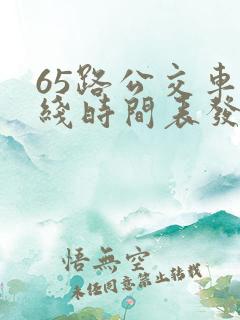 65路公交車
綫時間表發
悟無空
未任同意禁止转载